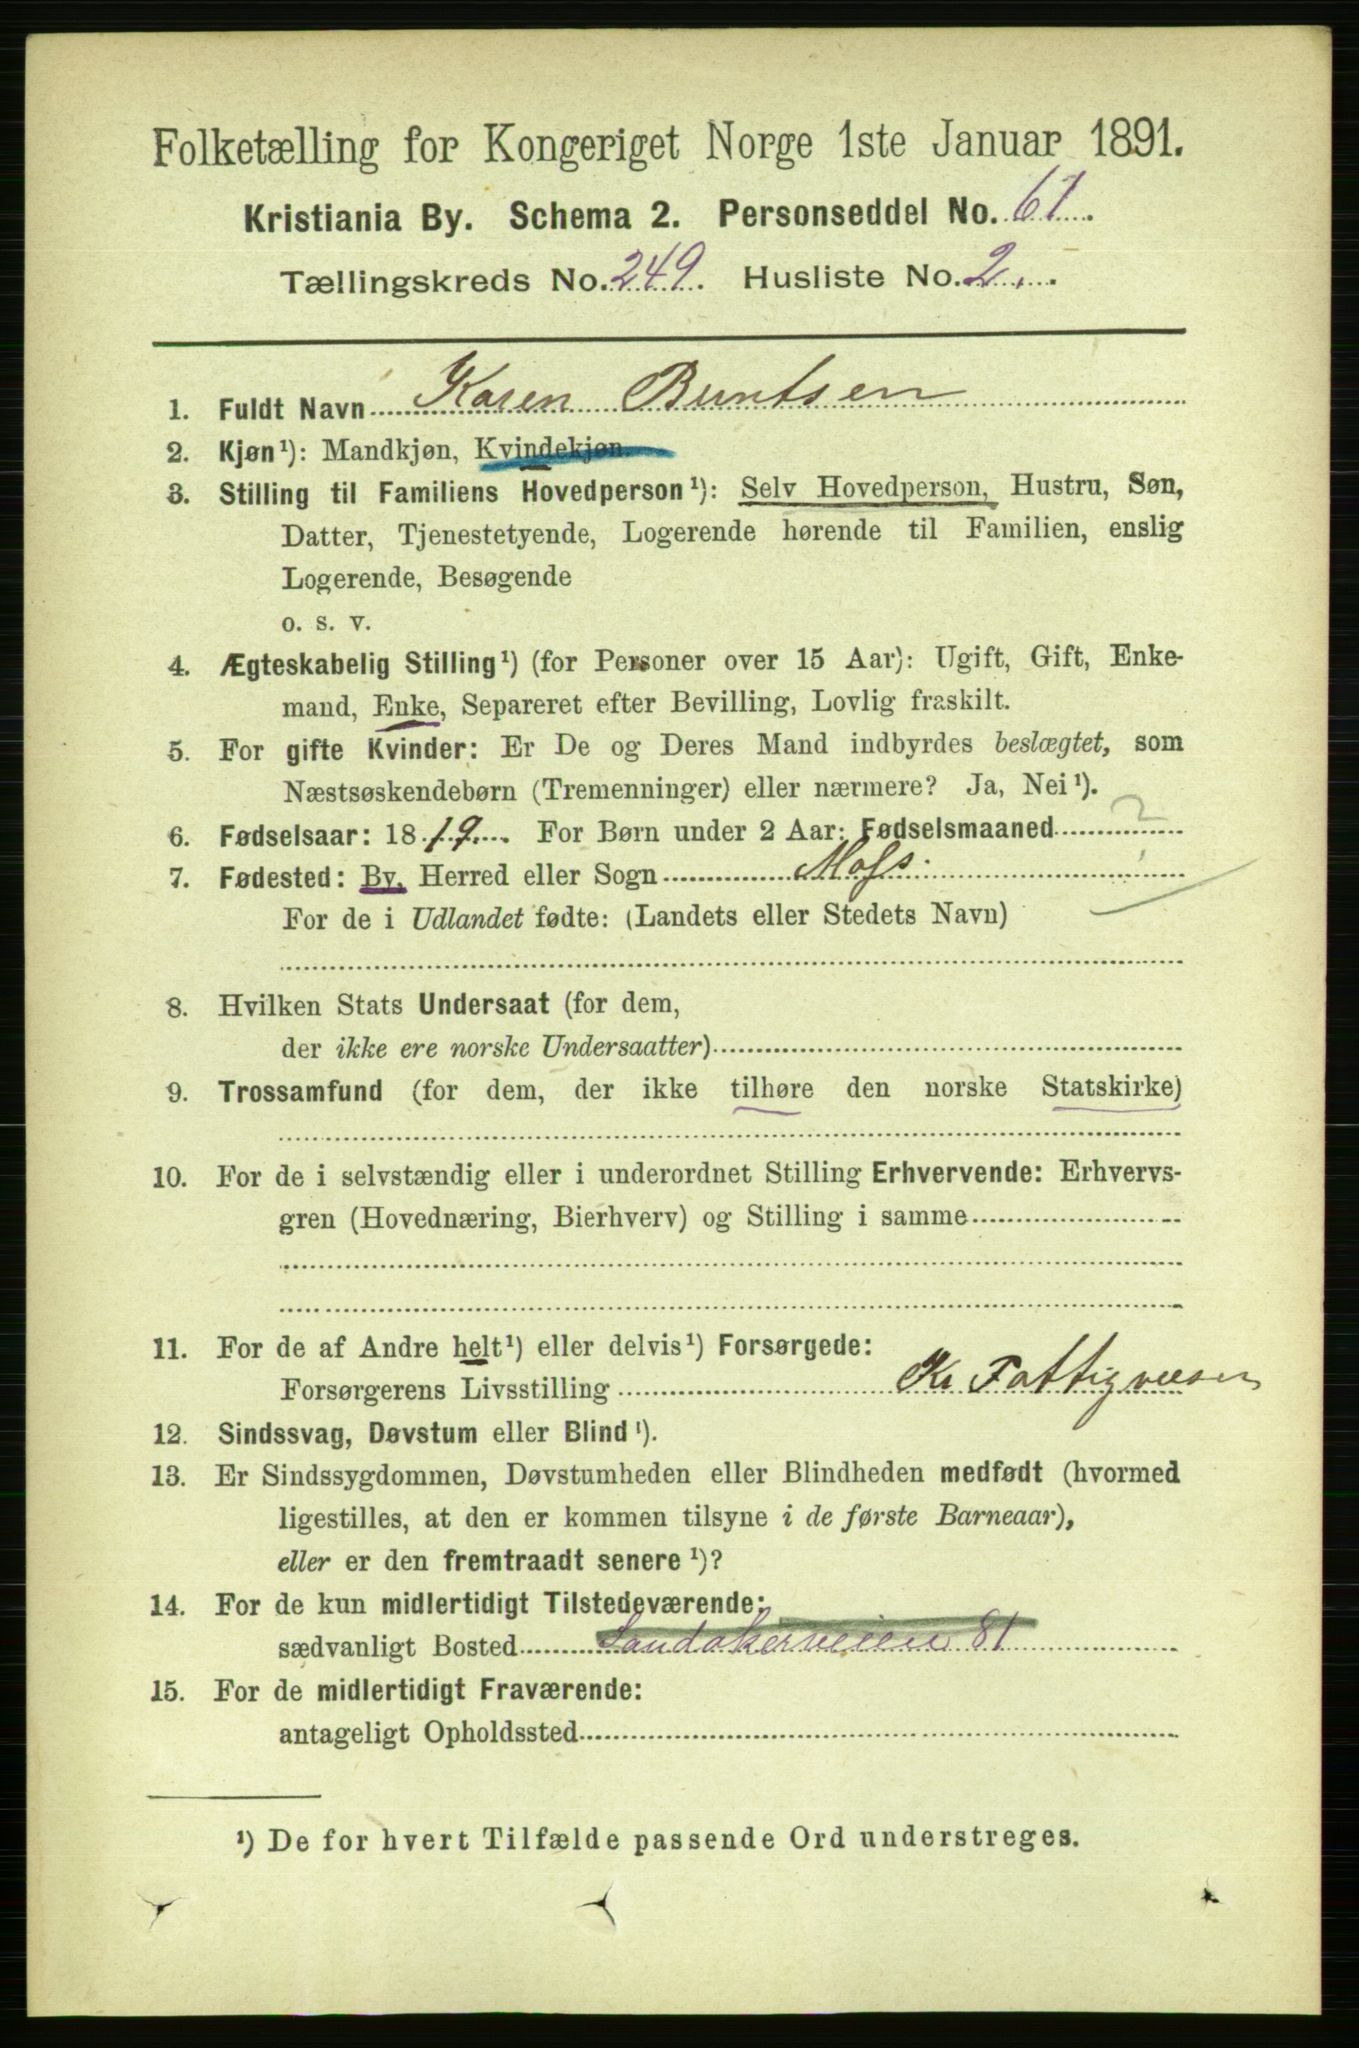 Folketælling for Kongeriget Norge 1ste Januar 1891.
Kristiania By. Schema 2. Personseddel No. 61.
Tællingskreds No. 249. Husliste No. 2.
1. Fuldt Navn Karen Berntsen
2. Kjøn¹): Mandkjøn, Kvindekjøn.
3. Stilling til Familiens Hovedperson¹): Selv Hovedperson, Hustru, Søn,
Datter, Tjenestetyende, Logerende hørende til Familien, enslig
Logerende, Besøgende
o. s. v.
4. Ægteskabelig Stilling¹) (for Personer over 15 Aar): Ugift, Gift, Enke-
mand, Enke, Separeret efter Bevilling, Lovlig fraskilt.
5. For gifte Kvinder: Er De og Deres Mand indbyrdes beslægtet, som
Næstsøskendebørn (Tremenninger) eller nærmere? Ja, Nei¹).
6. Fødselsaar: 1819. For Børn under 2 Aar: Fødselsmaaned ?
7. Fødested: By, Herred eller Sogn Moss.
For de i Udlandet fødte: (Landets eller Stedets Navn)
8. Hvilken Stats Undersaat (for dem,
der ikke ere norske Undersaatter)
9. Trossamfund (for dem, der ikke tilhøre den norske Statskirke)
10. For de i selvstændig eller i underordnet Stilling Erhvervende: Erhvervs-
gren (Hovednæring, Bierhverv) og Stilling i samme
11. For de af Andre helt¹) eller delvis¹) Forsørgede:
Forsørgerens Livsstilling Kr Fattigvæsen
12. Sindssvag, Døvstum eller Blind¹).
13. Er Sindssygdommen, Døvstumheden eller Blindheden medfødt (hvormed
ligestilles, at den er kommen tilsyne i de første Barneaar),
eller er den fremtraadt senere¹)?
14. For de kun midlertidigt Tilstedeværende:
sædvanligt Bosted Sandakerveien 81
15. For de midlertidigt Fraværende:
antageligt Opholdssted
¹) De for hvert Tilfælde passende Ord understreges.